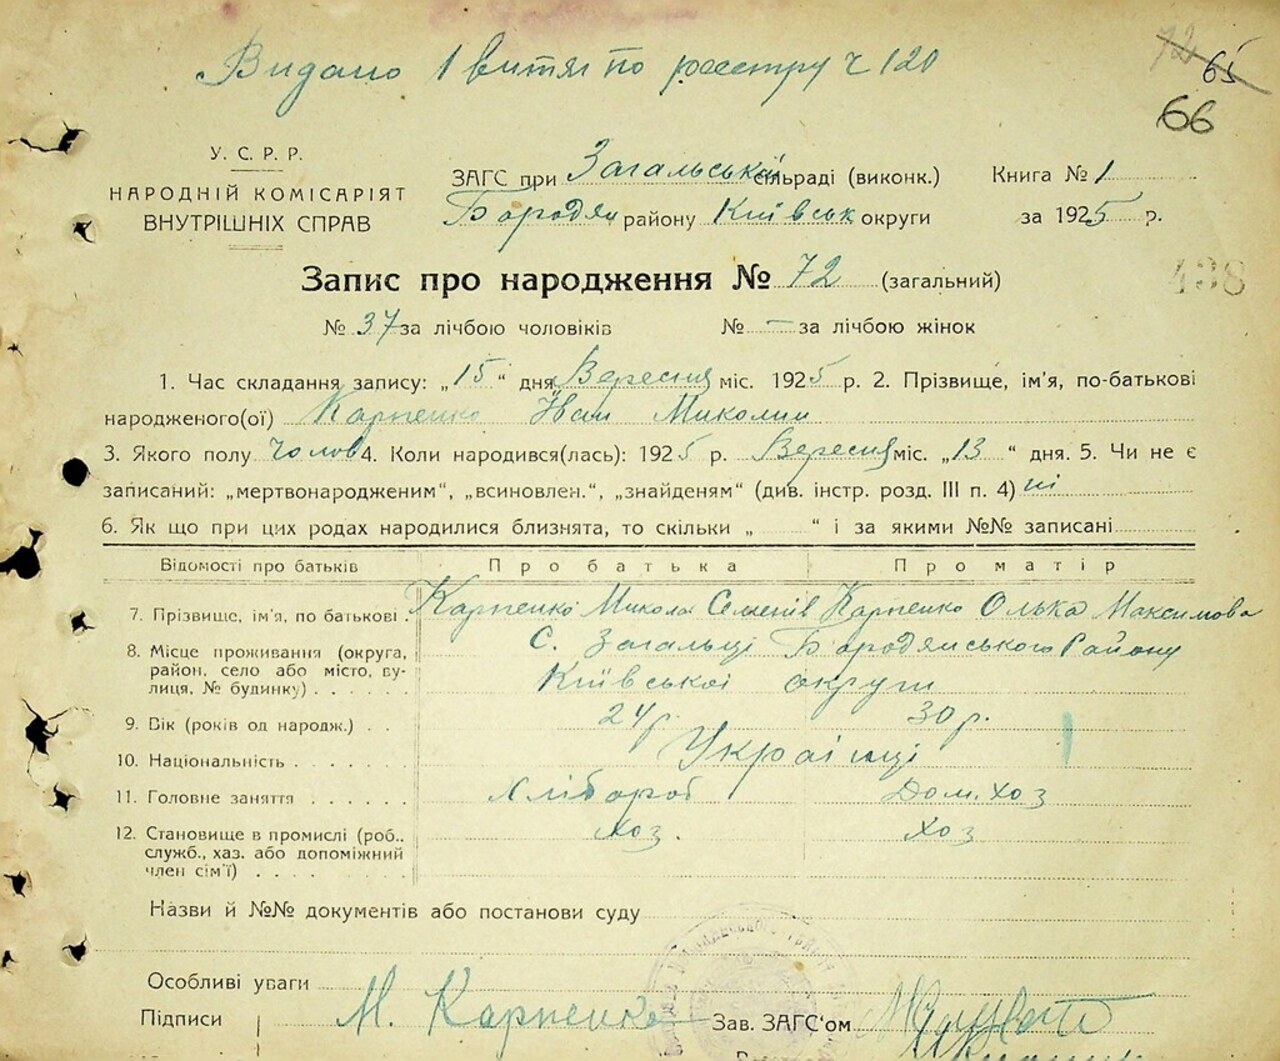 Видано 1 витяг по реєстру ч 120
72 65
66
У. С. Р. Р.
НАРОДНІЙ КОМІСАРІЯТ
ВНУТРІШНІХ СПРАВ
ЗАГС при Загальській сільраді (виконк.) Книга № 1
Бородян району Київськ округи за 1925 р.
Запис про народження № 72 (загальний)
438
№ 37 за лічбою чоловіків № — за лічбою жінок
1. Час складання запису: „15“ дня Вересня міс. 1925 р. 2. Прізвище, ім'я, по-батькові
народженого(ої) Карпенко Іван Миколин
3. Якого полу Чолов 4. Коли народився(лась): 1925 р. Вересня міс. „13“ дня. 5. Чи не є
записаний: „мертвонародженим“, „всиновлен.“, „знайденям“ (див. інстр. розд. III п. 4) ні
6. Як що при цих родах народилися близнята, то скільки „ “ і за якими №№ записані
Відомості про батьків Про батька Про матір
7. Прізвище, ім'я, по батькові. Карпенко Микола Семенів Карпенко Олька Максимова
8. Місце проживання (округа, С. Загальці Бородянського Району
район, село або місто, ву-
лиця, № будинку) Київської округи
9. Вік (років од народж.) 24 р. 30 р.
10. Національність Українці
11. Головне заняття Хлібороб Дом. Хоз
12. Становище в промислі (роб., хоз. Хоз
служб., хаз. або допоміжний
член сім'ї)
Назви й №№ документів або постанови суду
Особливі уваги
Підписи М. Карпенко Зав. ЗАГС'ом